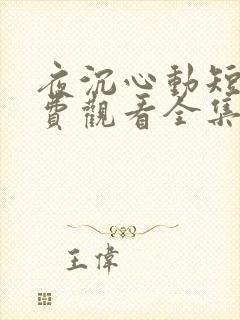 夜沉心動短
費觀看全集
王偉